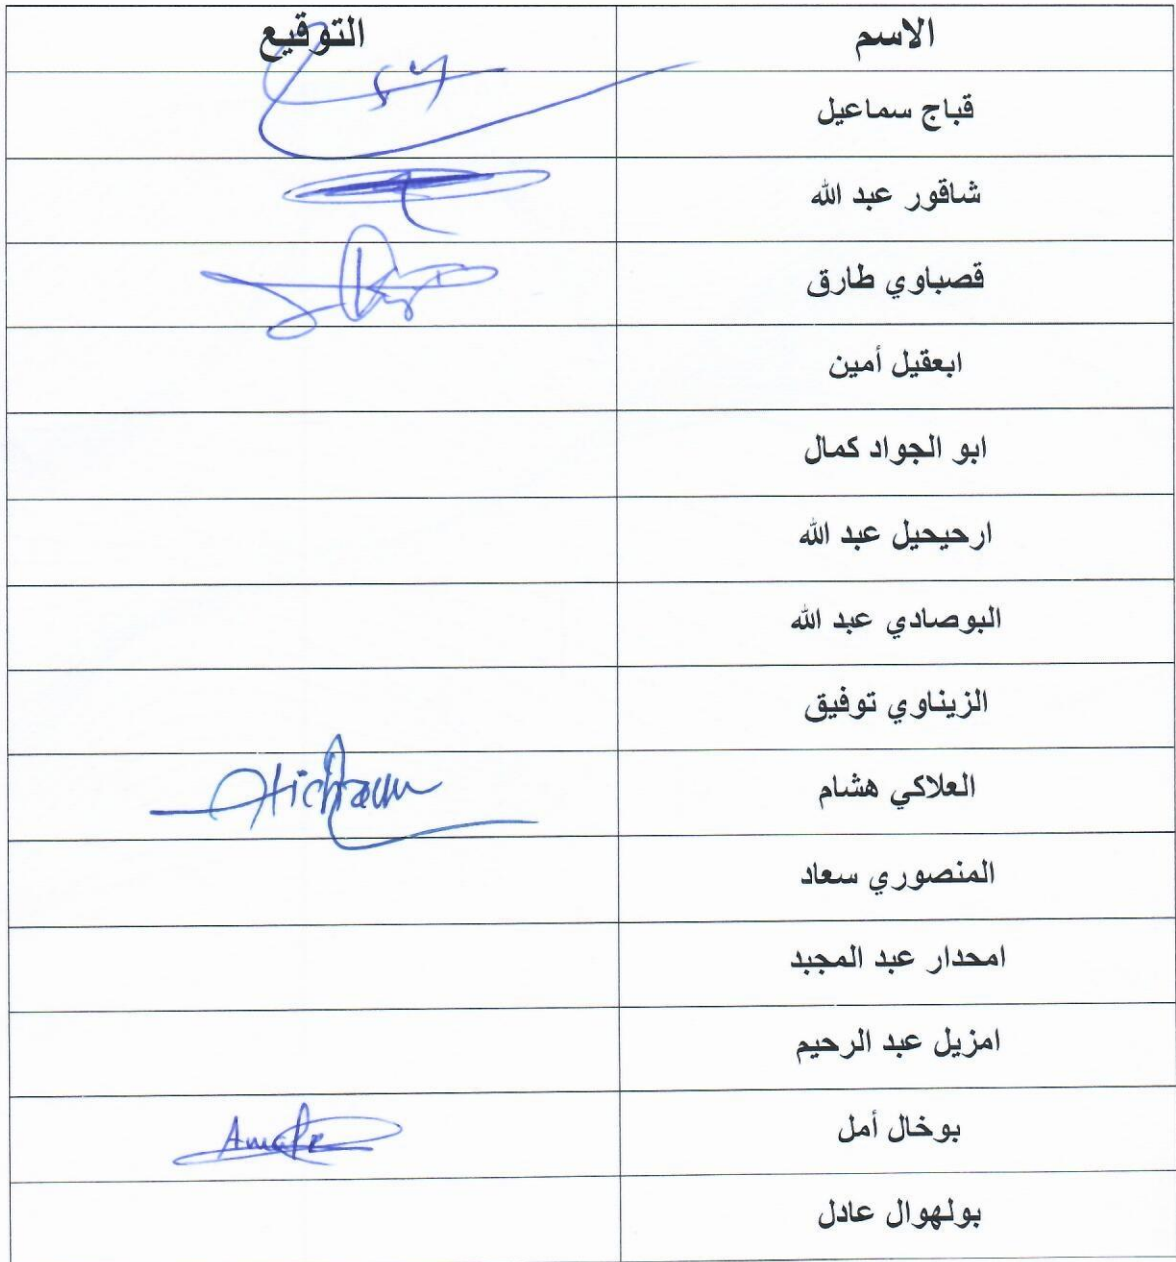 الاسم التوقيع
قباج سماعيل
شاقور عبد الله
قصباوي طارق
ابعقيل أمين
ابو الجواد كمال
ارحيحيل عبد الله
البوصادي عبد الله
الزيناوي توفيق
العلاكي هشام Hicham
المنصوري سعاد
امحدار عبد المجبد
امزيل عبد الرحيم
بوخال أمل Amal
بولهوال عادل